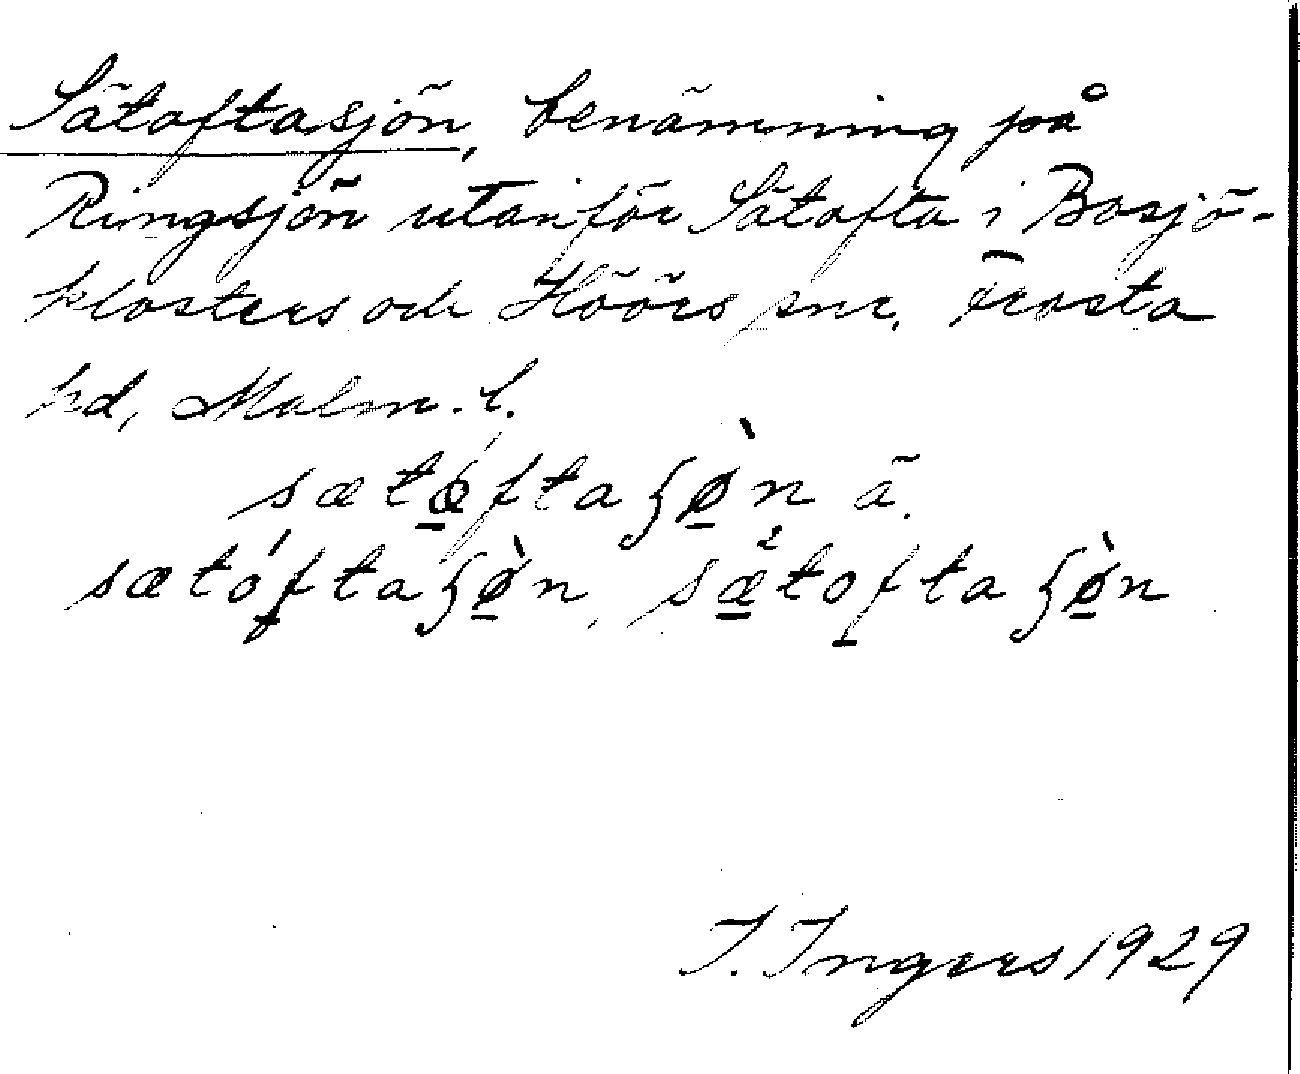 Sätoftasjön, benämning på
Ringsjön utanför Sätofta i Bosjö-
klosters och Höörs snr, Frosta
hd, Malm. l.
sætǿftaʃø̀n ä.
sætóftaʃø̀n, sætoftaʃø̀n
I. Ingers 1929